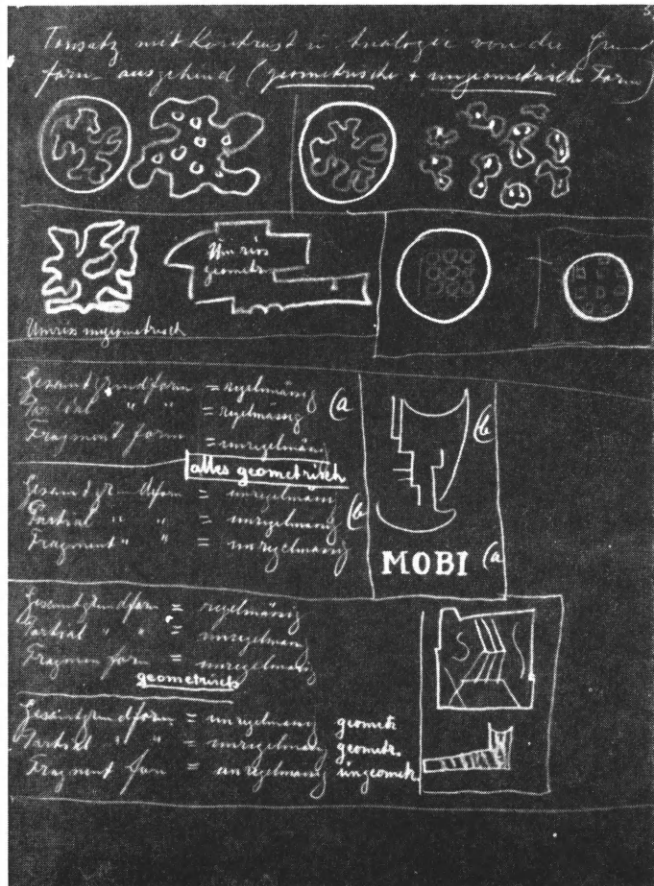 Tonsatz mit Kontrast u. Analogie von der Grund
form ausgehend (geometrische + ungeometrische Form)
Umriss
geometr.
Umriss ungeometrisch
Gesamtgrundform = regelmässig
Partial " " = regelmässig (a
Fragment form = unregelmässig
alles geometrisch
Gesamtgrundform = unregelmässig
Partial " " = unregelmässig (b
Fragment " " = unregelmässig
(b
MOBI (a
Gesamtgrundform = regelmässig
Partial " " = unregelmässig
Fragment form = unregelmässig
geometrisch
Gesamtgrundform = unregelmässig geometr.
Partial " " = unregelmässig geometr.
Fragment form = unregelmässig ungeometr.